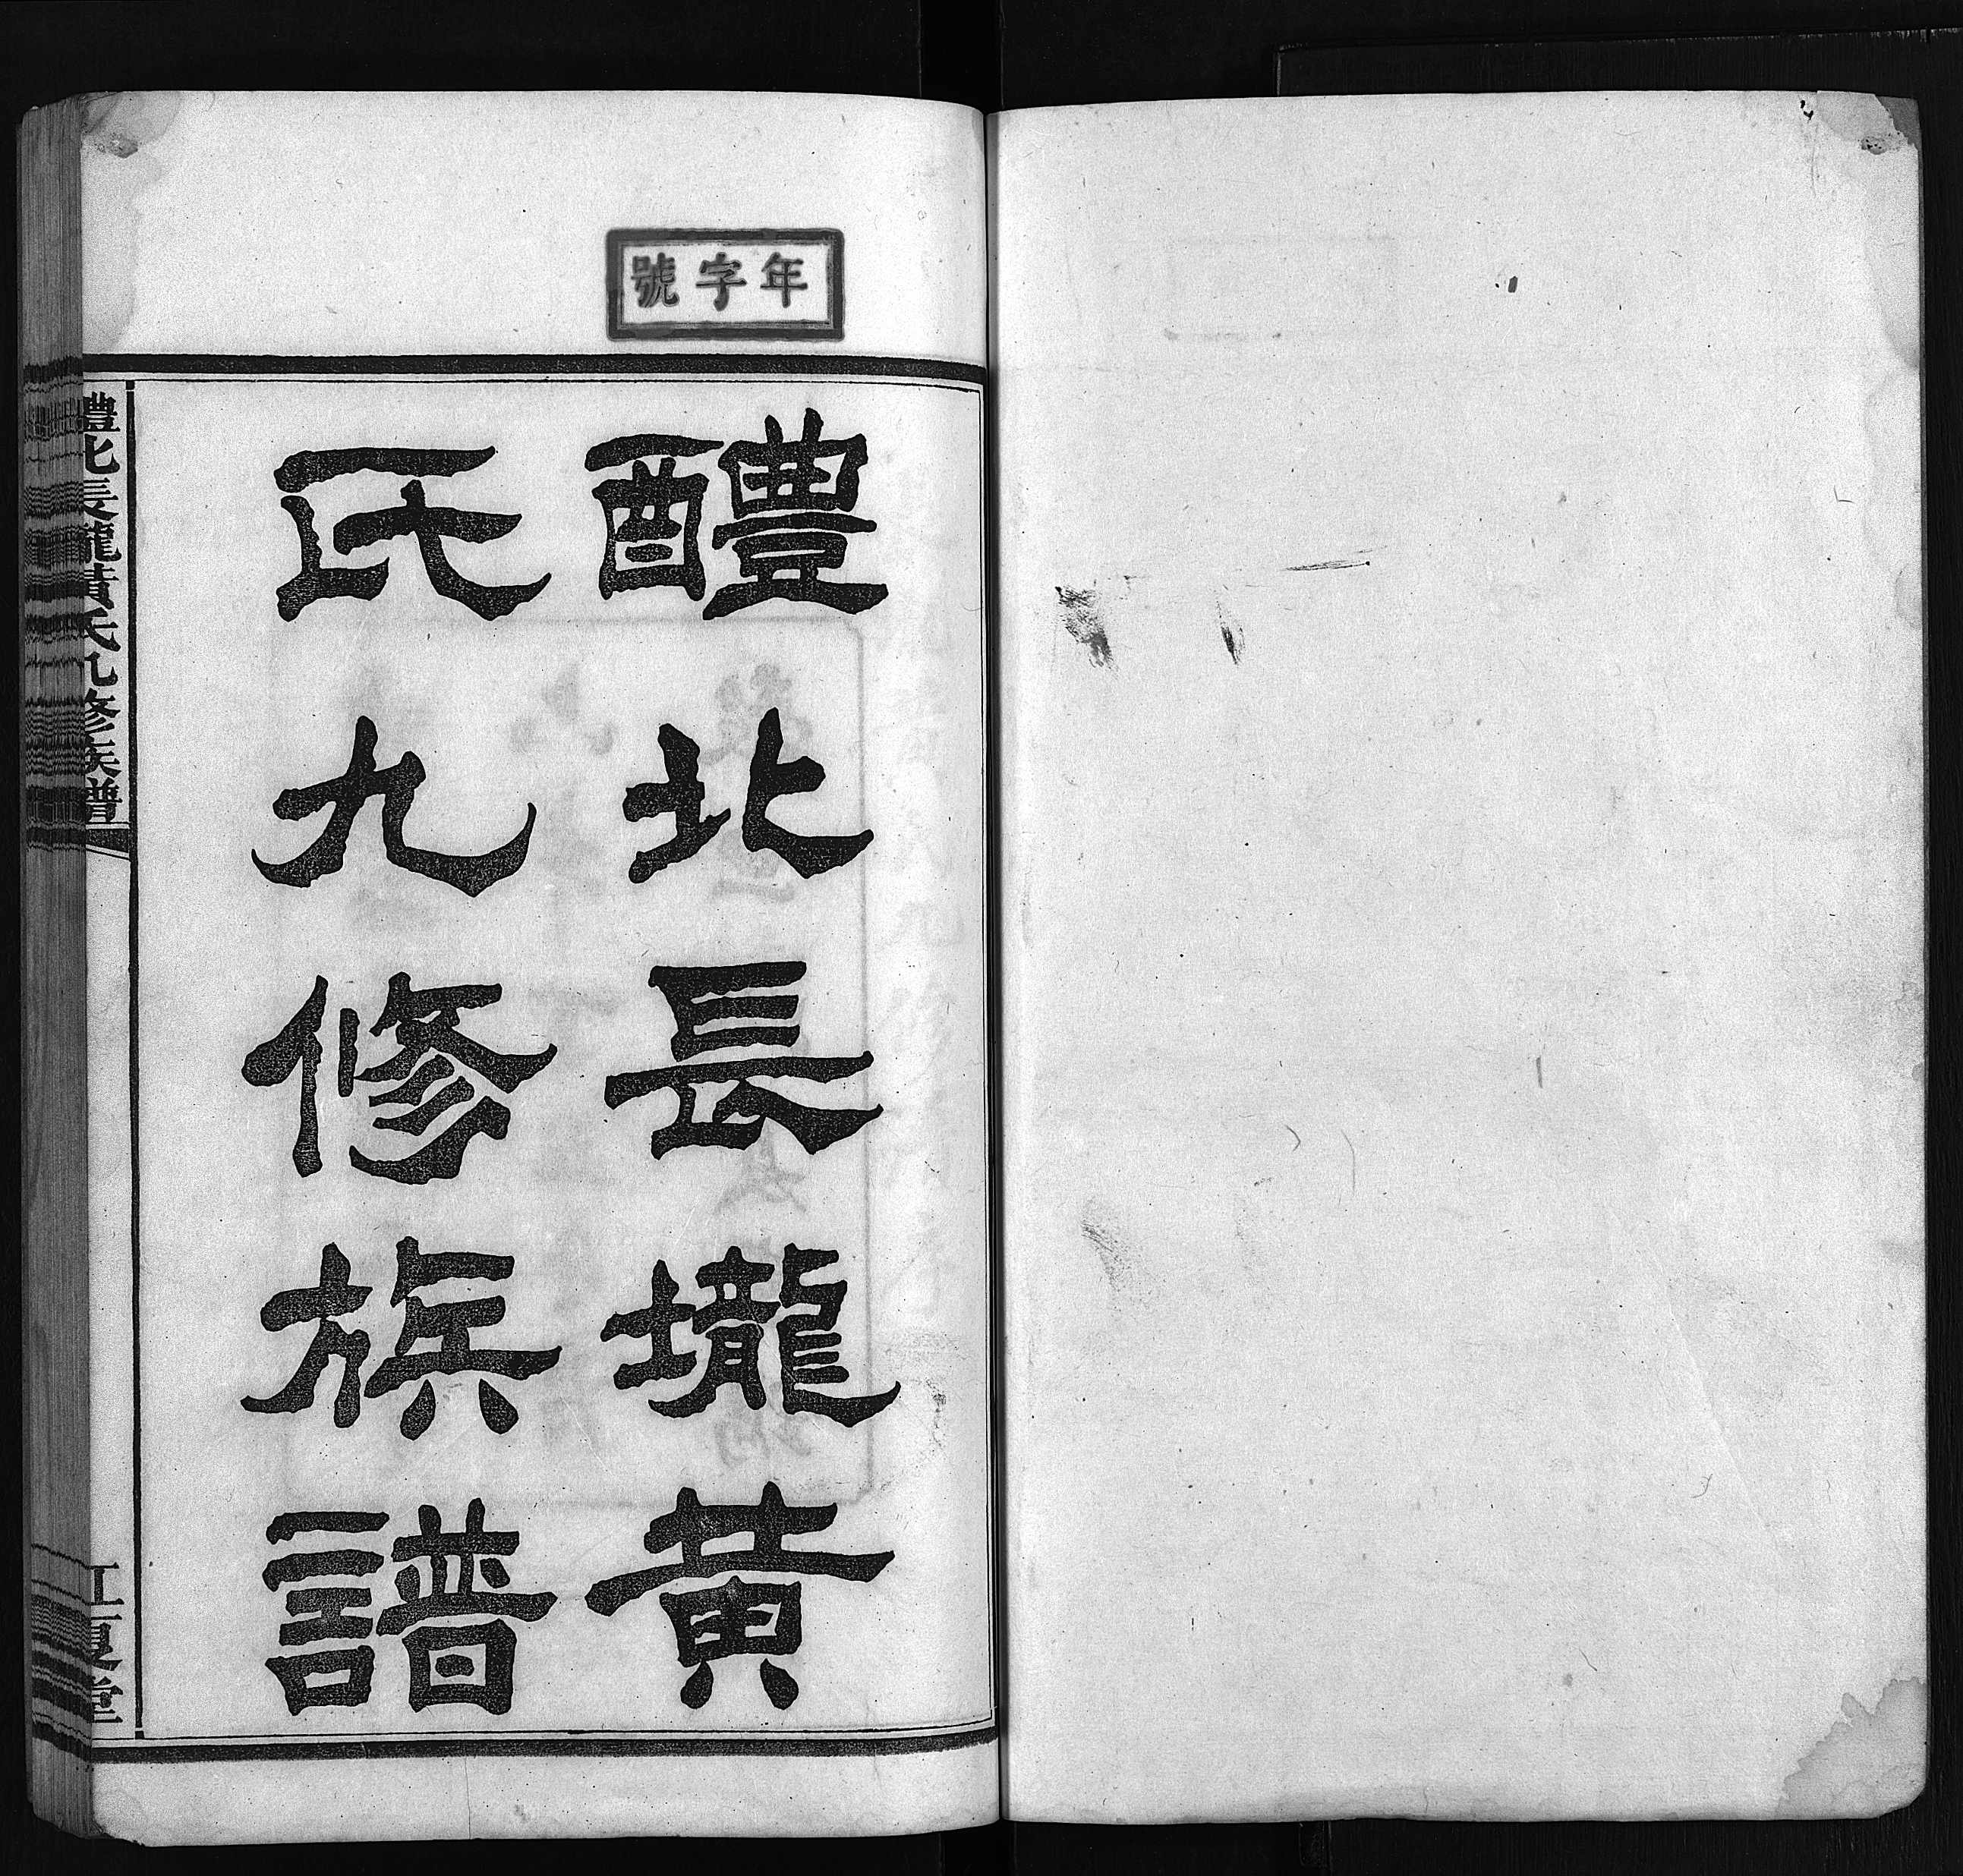 年字號
醴北長壠黃
氏九修族譜
醴北長蘢黃氏九修族譜
江夏堂